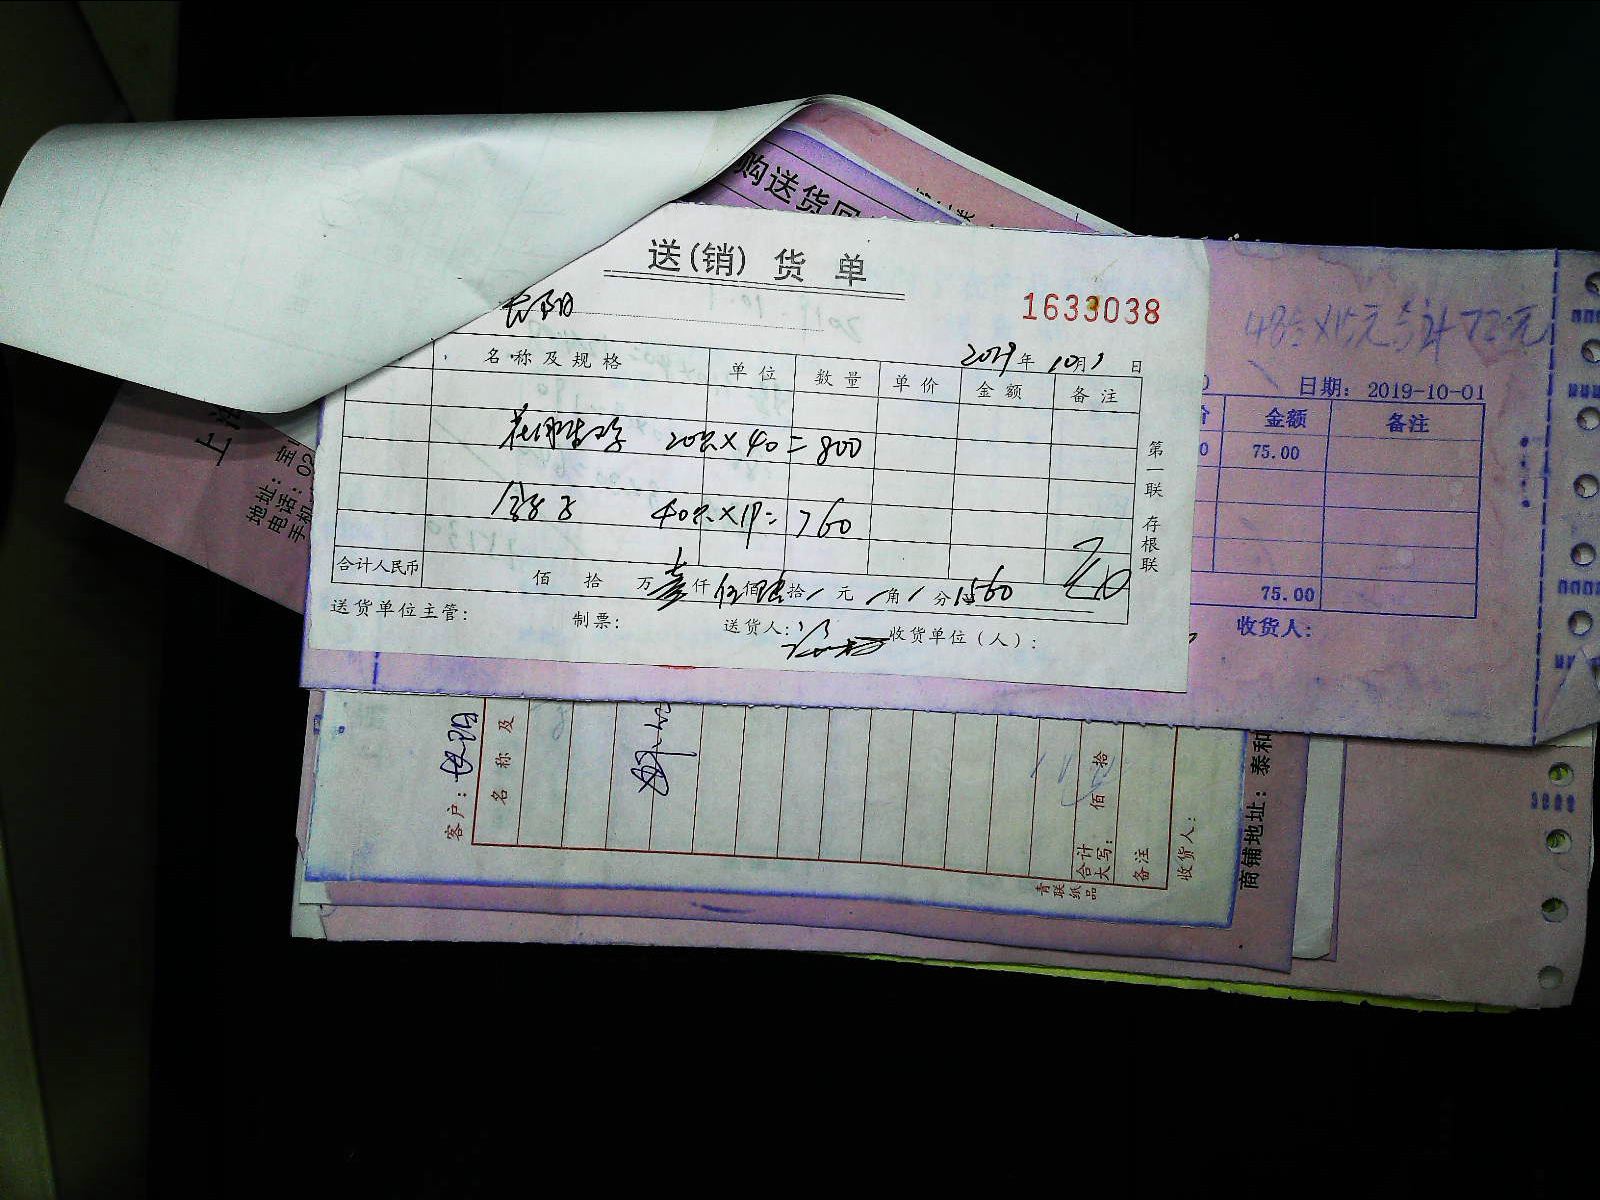 购送货回
送(销)货单
1633038
长阳
2019年10月1日
名称及规格 单位 数量 单价 金额 备注
20只×40=800
盒子 40只×19=760
合计人民币 佰 拾 万壹仟伍佰陆拾/元/角/分1560
送货单位主管： 制票： 送货人： 收货单位（人）：
第一联 存根联
48包×15元合计720元
日期：2019-10-01
金额 备注
75.00
75.00
收货人：
地址：宝
电话：02
手机
客户：长阳
名称及
佰拾
合计大写：
备注
收货人：
青联纸品
商铺地址：泰和